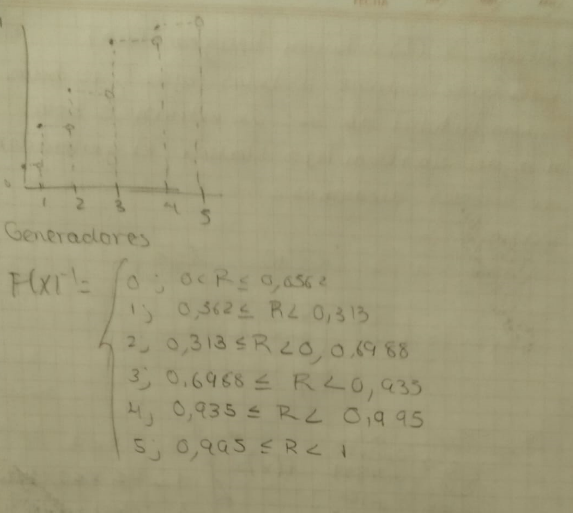 1 2 3 4 5
Generadores
F(x)⁻¹ = 0; 0 < R ≤ 0,0562
1; 0,562 ≤ R < 0,313
2, 0,313 ≤ R < 0, 0.6988
3; 0.6988 ≤ R < 0,935
4; 0,935 ≤ R < 0,995
5; 0,995 ≤ R < 1